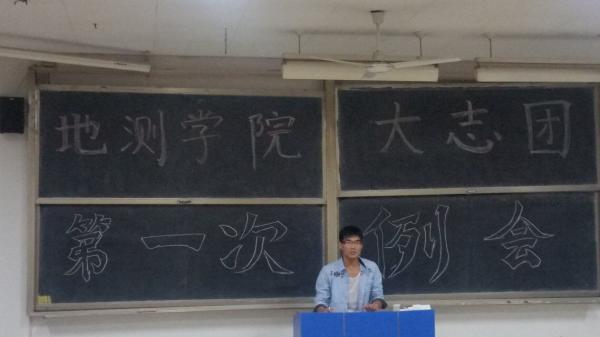 地测学院 大志团
第一次 例会